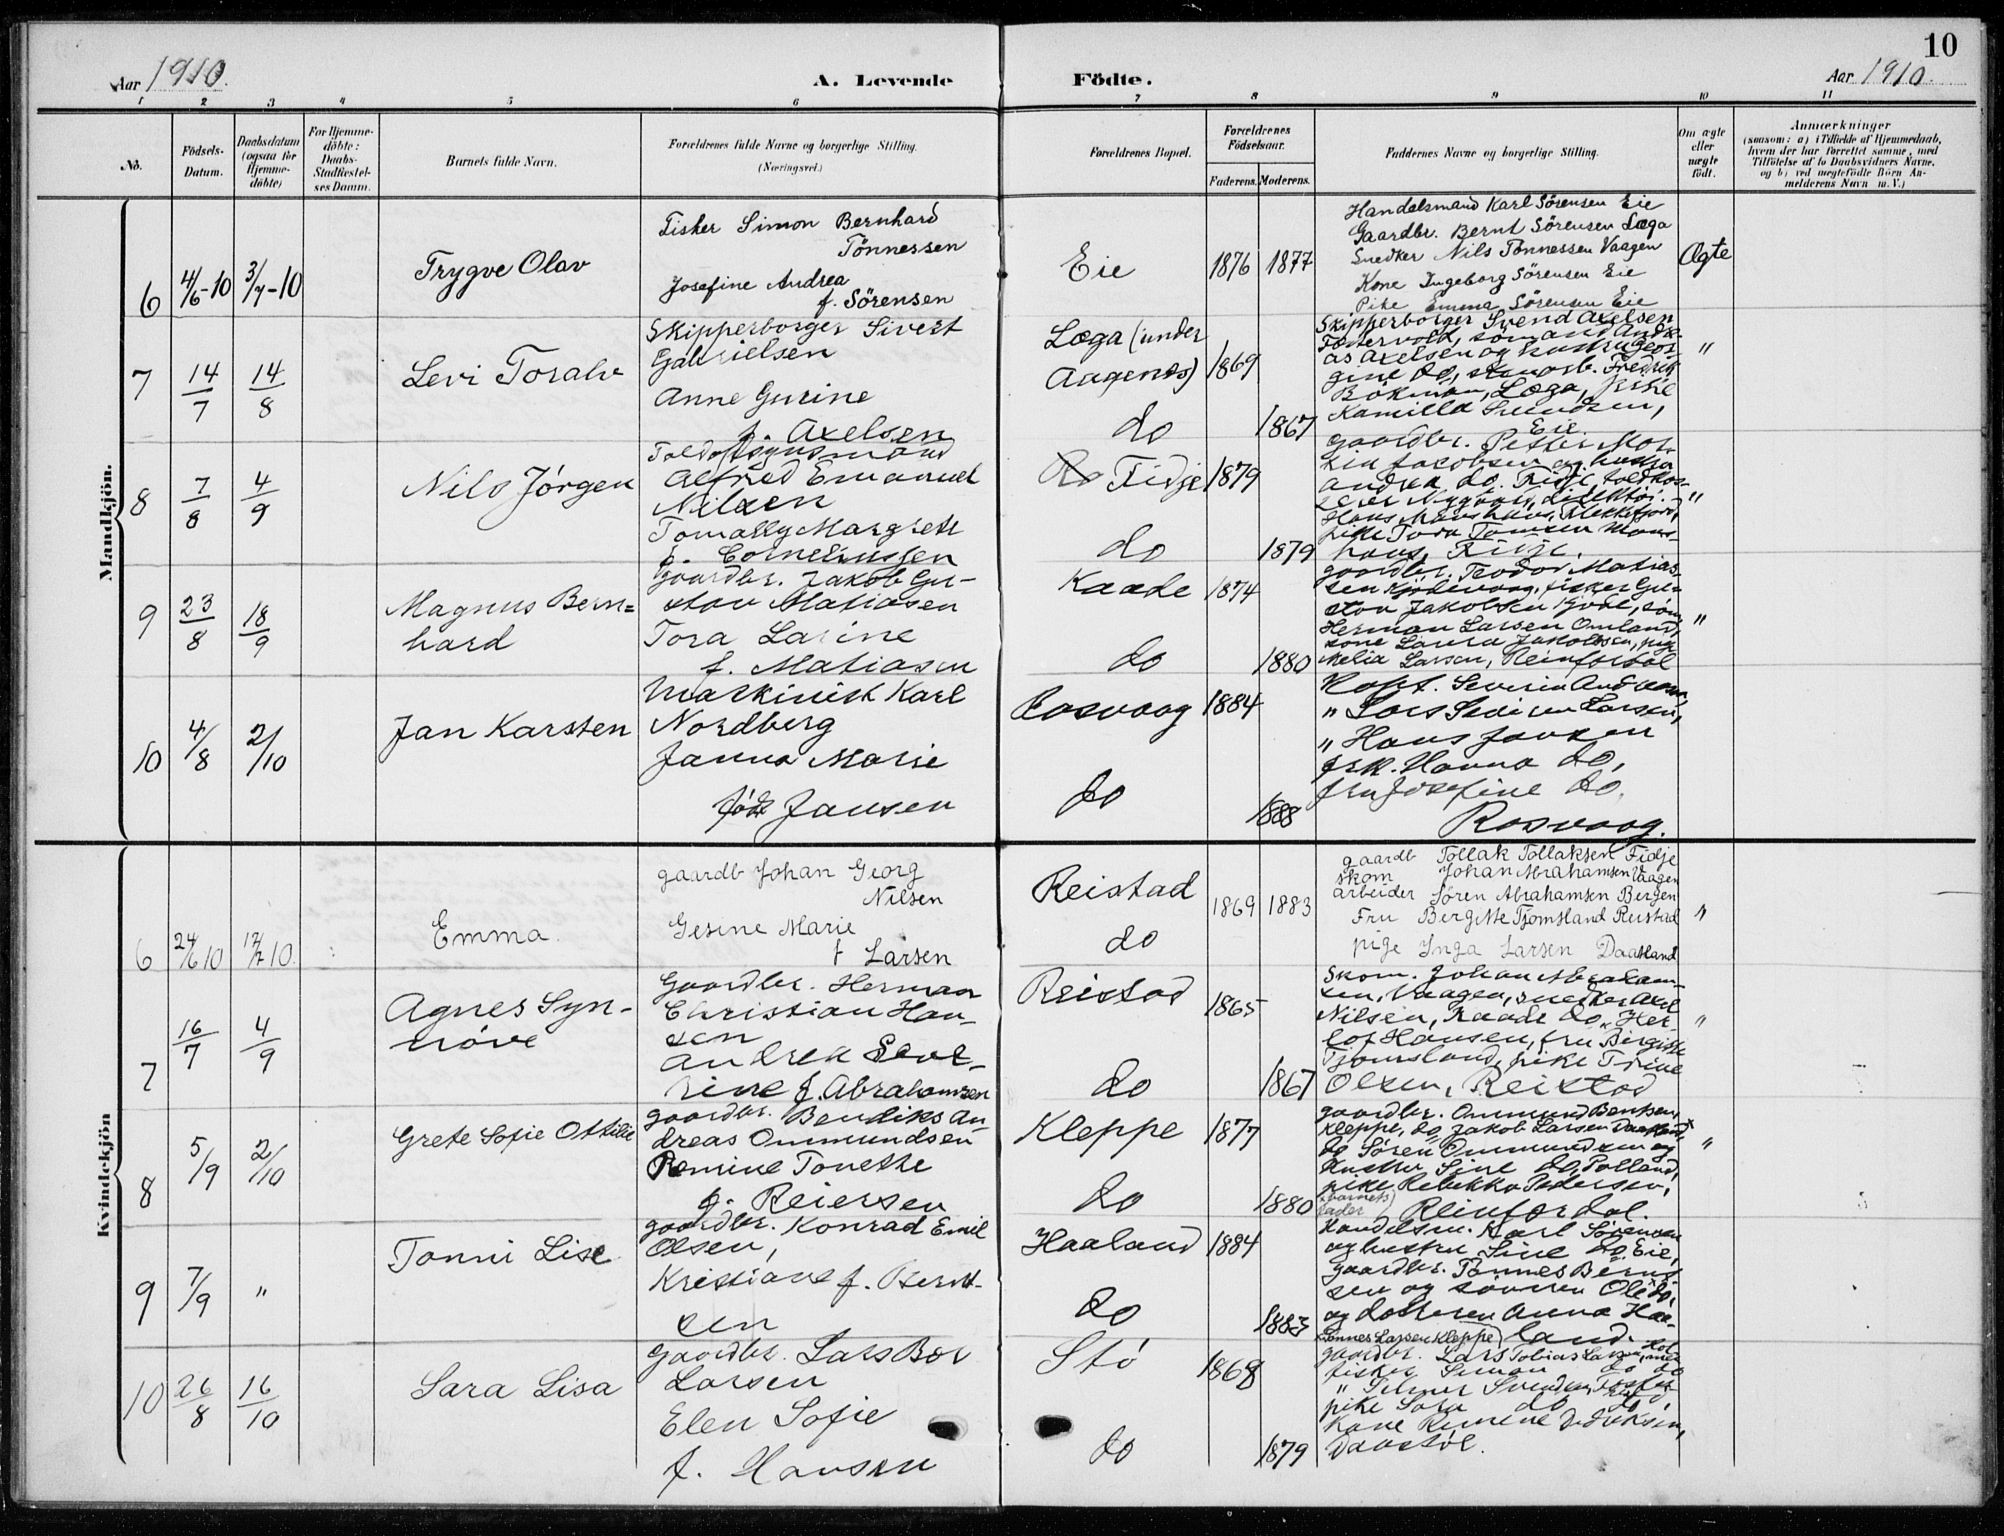 10
Aar 1910.
A. Levende Födte.
Aar 1910.
1 2 3 4 5 6 7 8 9 10 11
No.
Födsels-
Datum.
Daabsdatum
(ogsaa for
Hjemme-
döbte)
For Hjemme-
döbte:
Daabs-
Stadfæstel-
ses Datum.
Barnets fulde Navn.
Forældrenes fulde Navne og borgerlige Stilling.
(Næringsvei.)
Forældrenes Bopæl.
Forældrenes
Födselsaar.
Faderens. Moderens.
Faddernes Navne og borgerlige Stilling.
Om ægte
eller
uægte
födt.
Anmærkninger
(saasom: a) i Tilfælde af Hjemmedaab,
hvem der har forrettet samme, med
Tilföielse af to Daabsvidners Navne,
og b) ved uegtefödte Börn An-
melderens Navn m. V.)
Mandkjön.
6
4/6-10
3/7-10
Trygve Olav
Fisker Simon Bernhard
Tönnessen
Josefine Andrea
f. Sörensen
Eie
1876 1877
Handelsmand Karl Sörensen Eie
Gaardbr. Bernt Sörensen Læga
Snedker Nils Tönnessen Vaagen
Kone Ingeborg Sörensen Eie
Pike Emma Sörensen Eie
Ægte
7
14/7
14/8
Levi Toralv
Skipperborger Sivert
Gabrielsen
Anne Gurine
f. Axelsen
Læga (under
Aagenes)
do
1869
1867
Skipperborger Svend Axelsen
Fostervold, sömand Andre-
as Axelsen og hustru Geor-
gine do, Fredrik
Bökman, Læga, pike
Kamilla Svendsen,
Eie.
"
8
7/8
4/9
Nils Jörgen
Toldopsynsmand
Alfred Emanuel
Nilsen
Tomally Margrete
f. Corneliussen
Fidje
do
1879
1879
gaardbr. Petter Mar-
tin Jakobsen og hustru
Andrea do. Fidje, toldkas-
serer Nygaard, direktör
Hans Monshaus, Flekkefjord,
pike Tora Tomsen Mons-
haus, Fidje.
"
9
23/8
18/9
Magnus Bern=
hard
gaardbr. Jakob Gu-
stav Matiasen
Tora Larine
f. Matiasen
Kaade
do
1874
1880
gaardbr. Teodor Matias-
sen Kjödevaag, fisker Gu-
stav Jakobsen Kjöde, söm.
Herman Larsen Omland,
kone Laura Jakobsen, pige
Melia Larsen, Reinfordal
"
10
4/8
2/10
Jan Karsten
Maskinist Karl
Nordberg
Janna Marie
född Jansen
Rosvaag
do
1884
1888
Kapt. Severin Andersen,
" Lars Severin Larsen,
" Hans Jansen
frk. Hanna do,
fru Josefine do.
Rosvaag.
Kvindekjön
6
24/6 10
17/7 10.
Emma.
gaardb Johan Georg
Nilsen
Gesine Marie
f Larsen
Reistad
do
1869 1883
gaardb Tollak Tollaksen Fidje
skom Johan Abrahamsen Vaagen
arbeider Sören Abrahamsen Bergen
Fru Bergitte Tjomsland Reistad
pige Inga Larsen Daatland
"
7
16/7
4/9
Agnes Syn-
növe
Gaardbr. Herman
Christian Han-
sen
Andrea Seve-
rine f. Abrahamsen
Reistad
do
1865
1867
Skom. Johan Abraham-
sen, Vaagen, snedker Axel
Nilsen, Kaade do, Her-
lof Hansen, fru Bergitte
Tjomsland, pike Trine
Olsen, Reistad
"
8
5/9
2/10
Grete Sofie Ottilie
gaardbr. Bendiks An
dreas Ommundsen
Romine Tonette
f. Reiersen
Kleppe
do
1877
1880
gaardbr. Ommund Bentsen,
Kleppe, do Jakob Larsen Daatland,
do Sören Ommundsen og
Hustru Sine do, Polland,
pike Rebekka Pedersen,
(barnets
fader) Reinfordal.
"
9
7/9
"
Tonni Lise
gaardbr. Konrad Emil
Olsen,
Kristiane f. Bernt-
sen
Haaland
do
1884
1883
Handelsm. Karl Sörensen
og hustru Sine do Eie,
gaardbr. Tönnes Bernt
sen og sönnen Ole do,
og datteren Anna Haa-
land.
10
26/8
16/10
Sara Lisa
Gaardbr. Lars Bor
Larsen
Elen Sofie
f. Hansen
Stö
do
1868
1879
Tönnes Larsen Kleppe)
gaardbr. Lars Tobias Larsen,
fisker Simon do do
" Selmer Svendsen
pike Sara do do,
Kone Remine Dideriksen,
Daastöl.